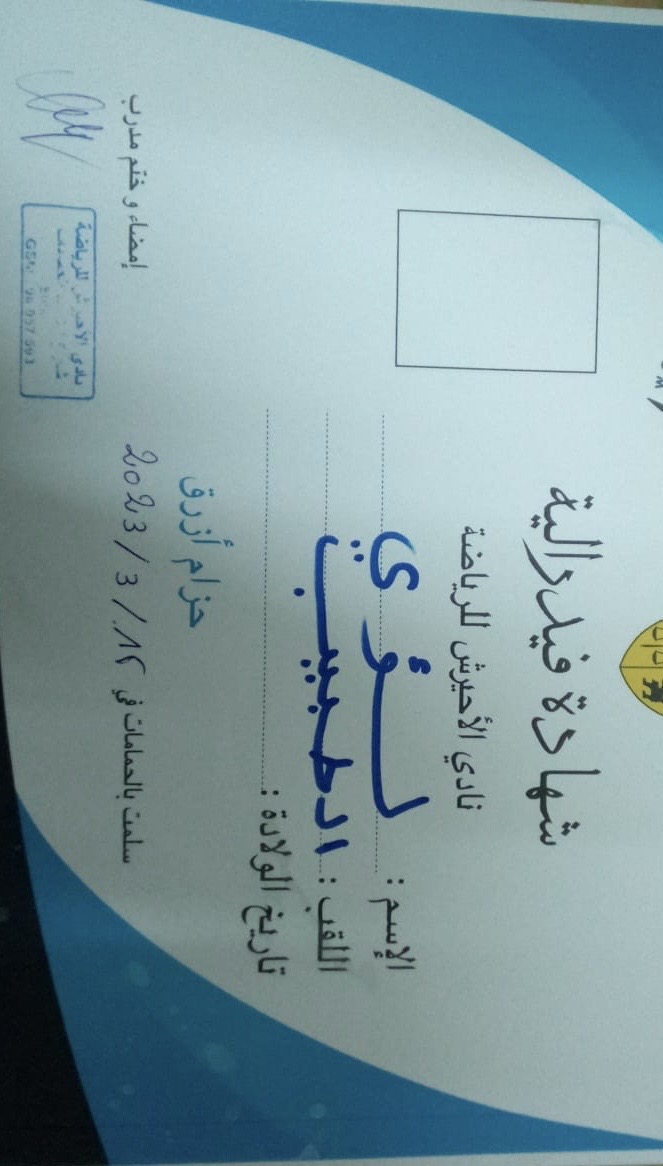 شهادة فيدرالية
نادي الأحيرش للرياضة
الإسم : لؤي
اللقب : الطبيب
تاريخ الولادة :
حزام أزرق
سلمت بالحمامات في 2023/3/15
إمضاء و ختم مدرب
نادي الأحيرش للرياضة
GSM: 98 957 593